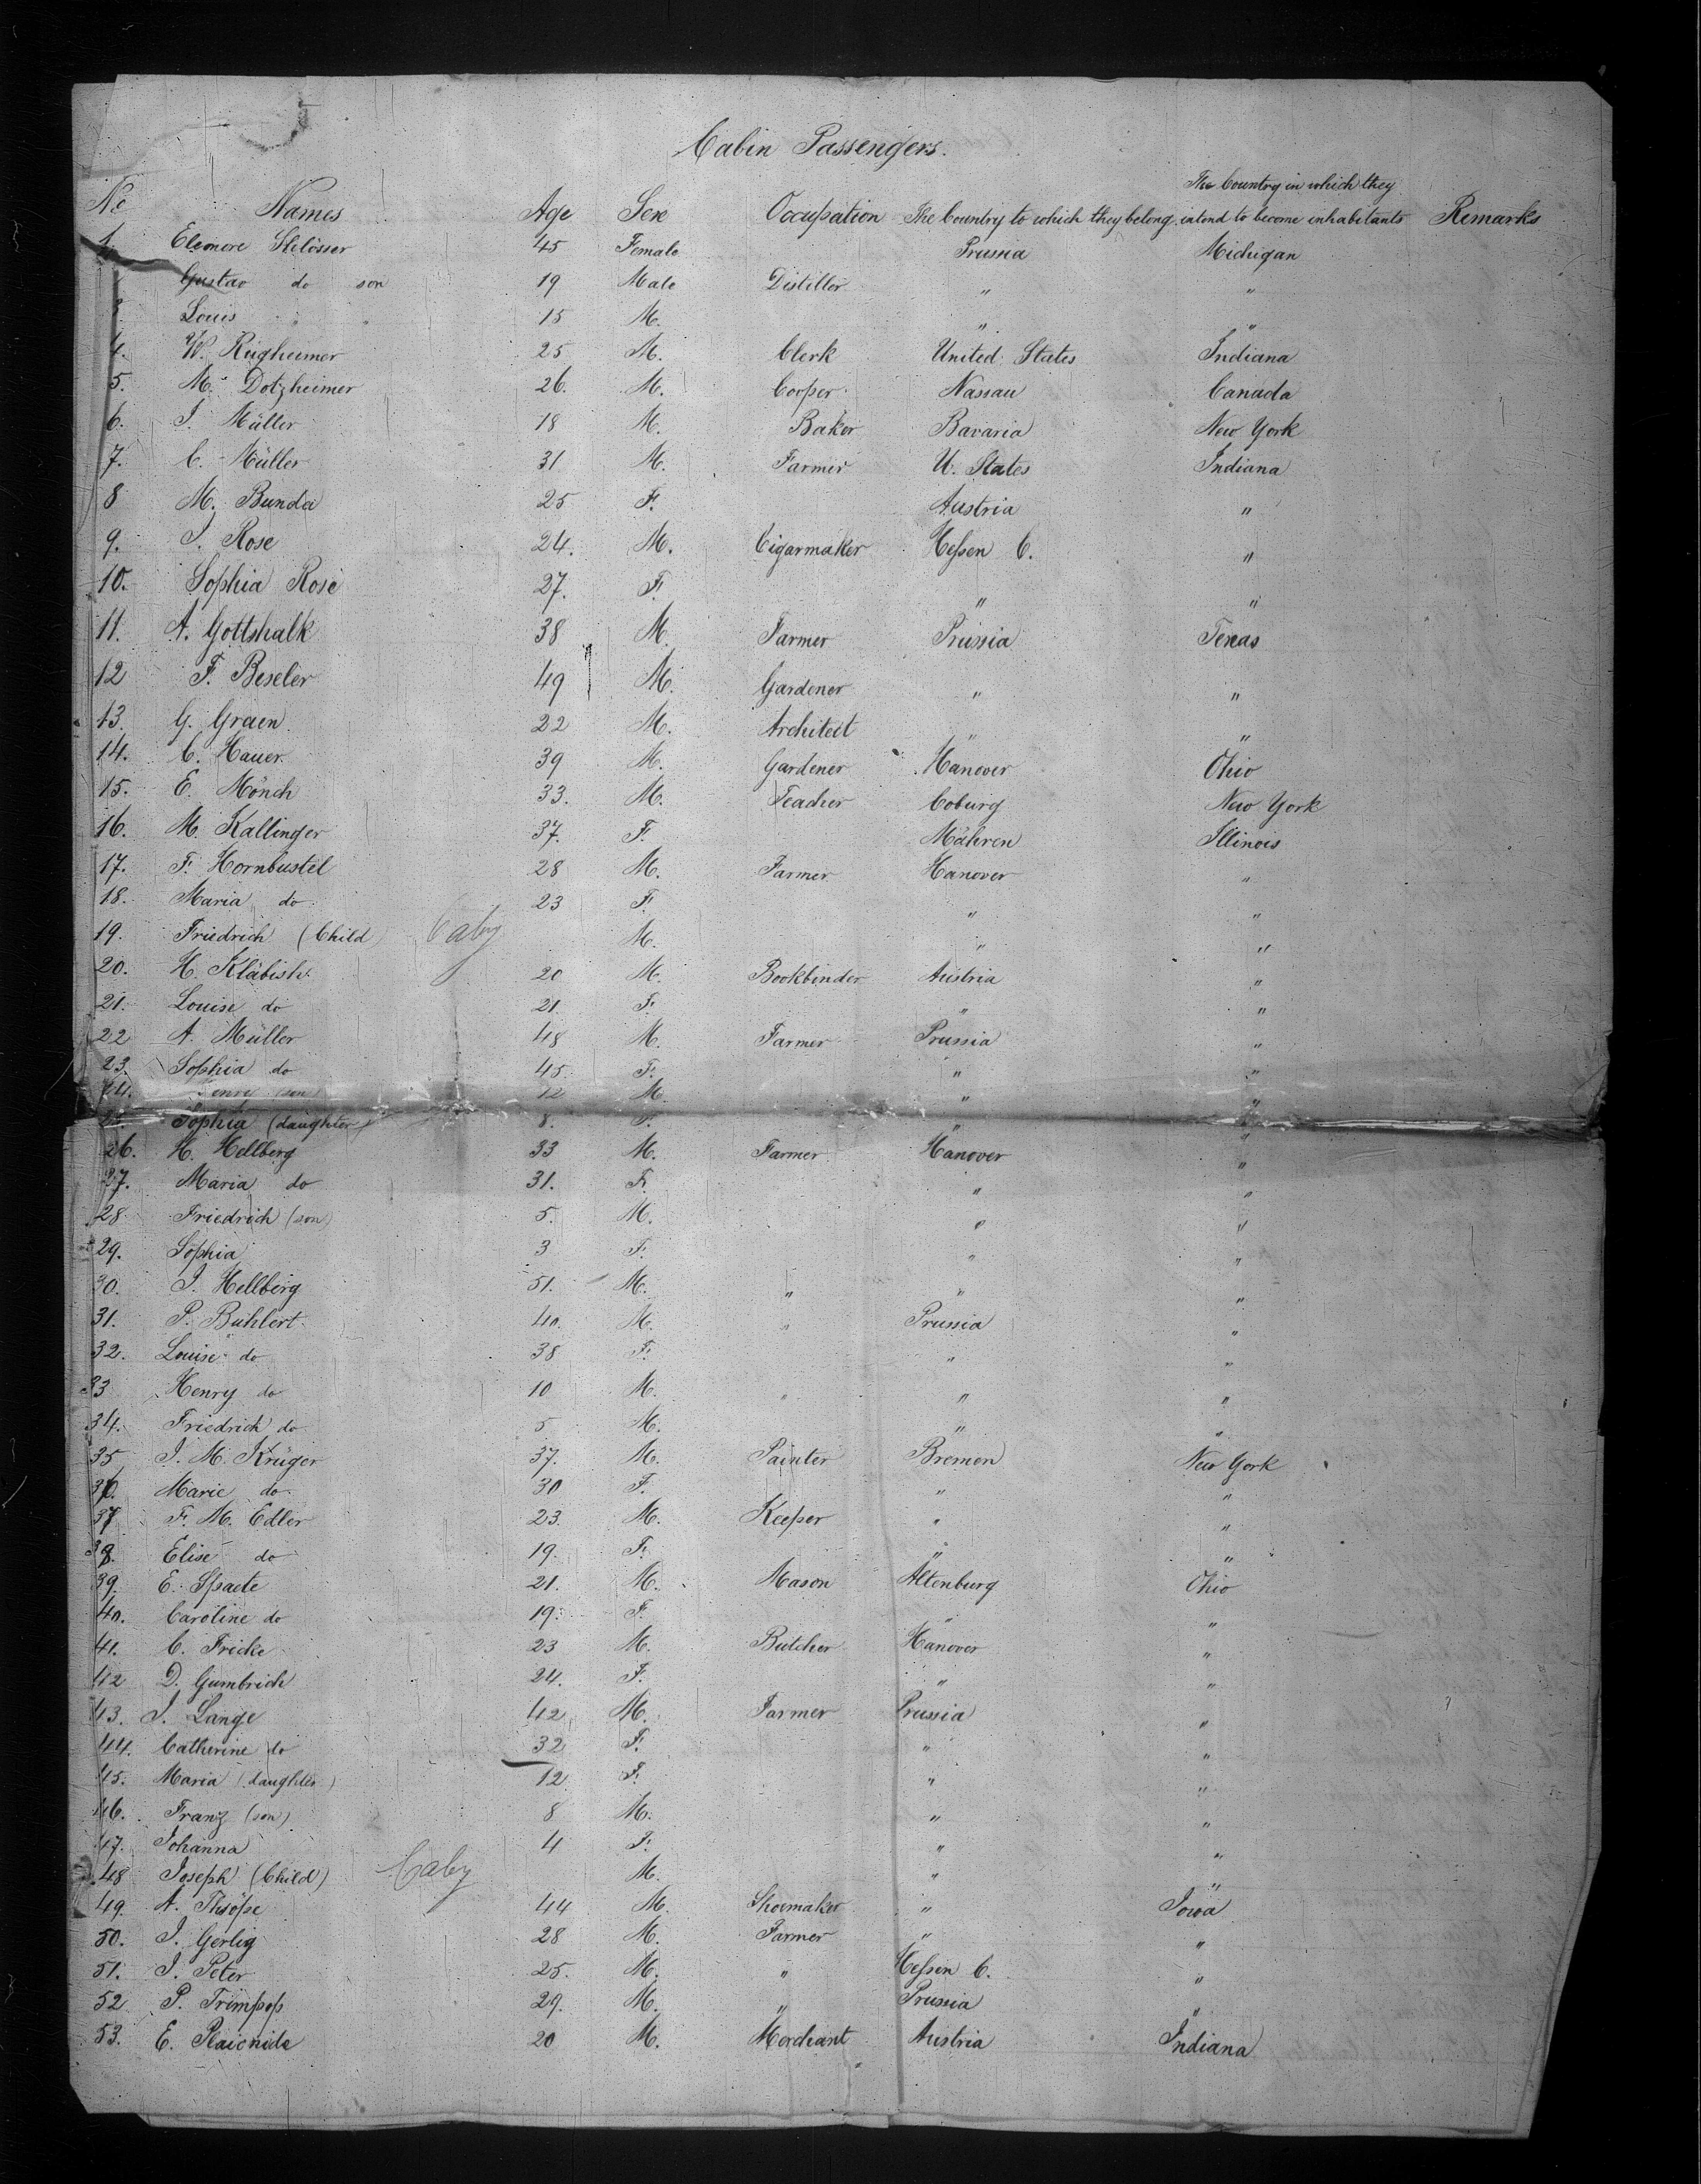 Cabin Passengers.
The Country in which they
No Names Age Sex Occupation The Country to which they belong intend to become inhabitants Remarks
1. Eleonore Schlösser 45 Female Prussia Michigan
Gustav do son 19 Male Distiller " "
3. Louis " " 15 M. " "
4. W. Rügheimer 25 M. Clerk United States Indiana
5. M. Dotzheimer 26. M. Cooper Nassau Canada
6. J. Müller 18 M. Baker Bavaria New York
7. C. Müller 31 M. Farmer U. States Indiana
8 M. Bunda 25 F. Austria "
9. J. Rose 24. M. Cigarmaker Hessen C. "
10. Sophia Rose 27. F. " "
11. A. Gottshalk 38 M. Farmer Prussia Texas
12 F. Beseler 49 M. Gardener " "
13. G. Graen 22 M. Architect " "
14. C. Hauer. 39 M. Gardener Hanover Ohio
15. E. Mönch 33. M. Teacher Coburg New York
16. M. Kallinger 37. F. Mähren Illinois
17. F. Hornbustel 28 M. Farmer Hanover "
18. Maria do 23 F. " "
19. Friedrich (Child) Baby M. " "
20. H. Kläbish 20 M. Bookbinder Austria "
21. Louise do 21. F. " "
22 A. Müller 48 M. Farmer Prussia "
23. Sophia do 45. F. " "
24. Henry (son) 12 M. " "
25. Sophia (daughter) 8. F. " "
26. H. Hellberg 33 M. Farmer Hanover "
27. Maria do 31. F. " "
28 Friedrich (son) 5. M. " "
29. Sophia 3 F. " "
30. J. Hellberg 51. M. " " "
31. P. Buhlert 40. M. " Prussia "
32. Louise do 38 F. " "
33 Henry do 10 M. " " "
34. Friedrich do 5 M. " "
35 J. M. Krüger 37. M. Painter Bremen New York
36. Marie do 30 F. " "
37 F. M. Edler 23. M. Keeper " "
38. Elise do 19. F. " "
39. E. Spaete 21. M. Mason Altenburg Ohio
40. Caroline do 19. F. " "
41. C. Fricke 23 M. Butcher Hanover "
42 D. Gumbrich 24. F. " "
43. J. Lange 42 M. Farmer Prussia "
44. Catherine do 32 F. " "
45. Maria (daughter) 12 F. " "
46. Franz (son) 8 M. " "
47. Johanna 4 F. " "
48 Joseph (Child) Baby M. " "
49. A. 44 M. Shoemaker " Iowa
50. J. Gerlig 28 M. Farmer " "
51. J. Peter 25. M. " Hessen C. "
52 P. Trimpop 29. M. " Prussia "
53. E. 20 M. Merchant Austria Indiana